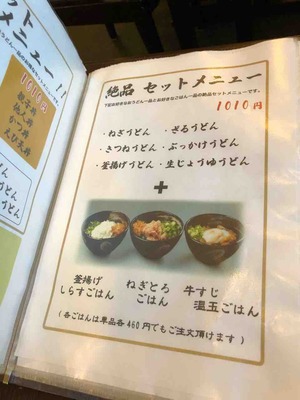 ニュー !!
1010円
親子丼
他人丼
カツ丼
えび玉丼
絶品 セットメニュー
下記お好きなおうどん一品とお好きなごはん一品の絶品セットメニューです。
1010円
・ねぎうどん ・ざるうどん
・きつねうどん ・ぶっかけうどん
・釜揚げうどん ・生じょうゆうどん
+
釜揚げ
しらすごはん
ねぎとろ
ごはん
牛すじ
温玉ごはん
(各ごはんは単品各460円でもご注文頂けます)